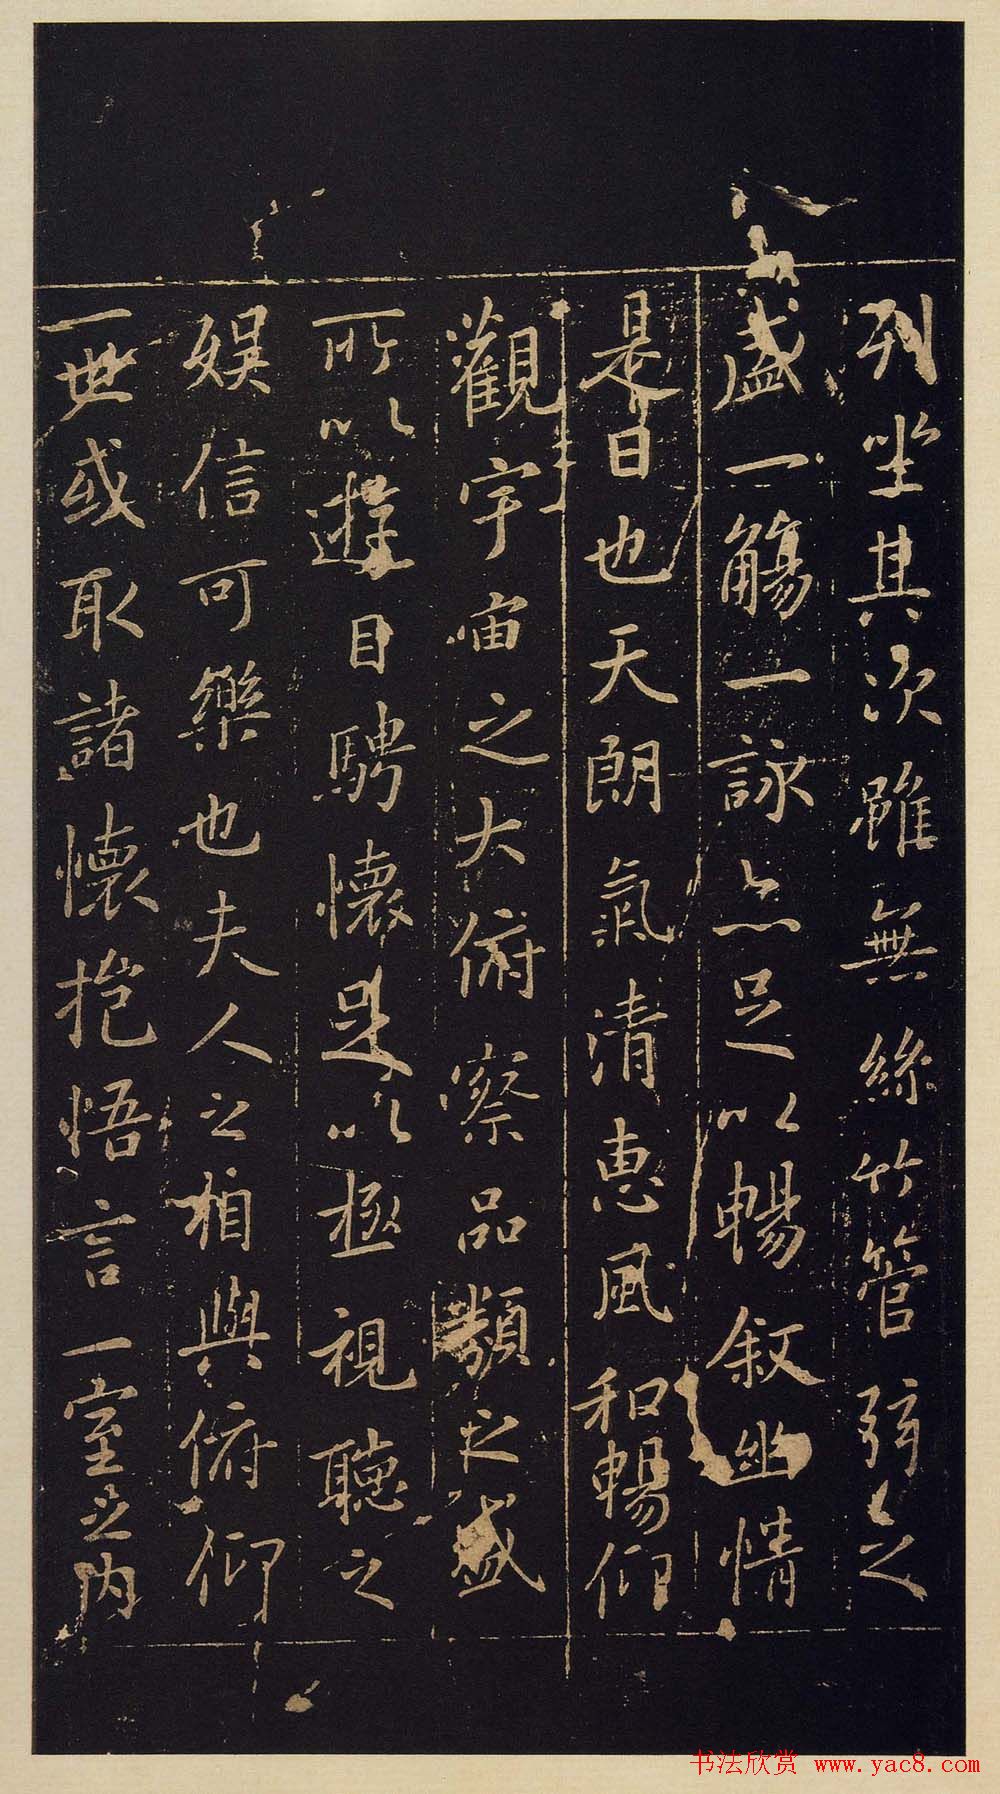 列坐其次雖無絲竹管弦之
盛一觴一詠亦足以暢叙幽情
是日也天朗氣清惠風和暢仰
觀宇宙之大俯察品類之盛
所以遊目騁懷足以極視聽之
娛信可樂也夫人之相與俯仰
一世或取諸懷抱悟言一室之内
书法欣赏 www.yac8.com